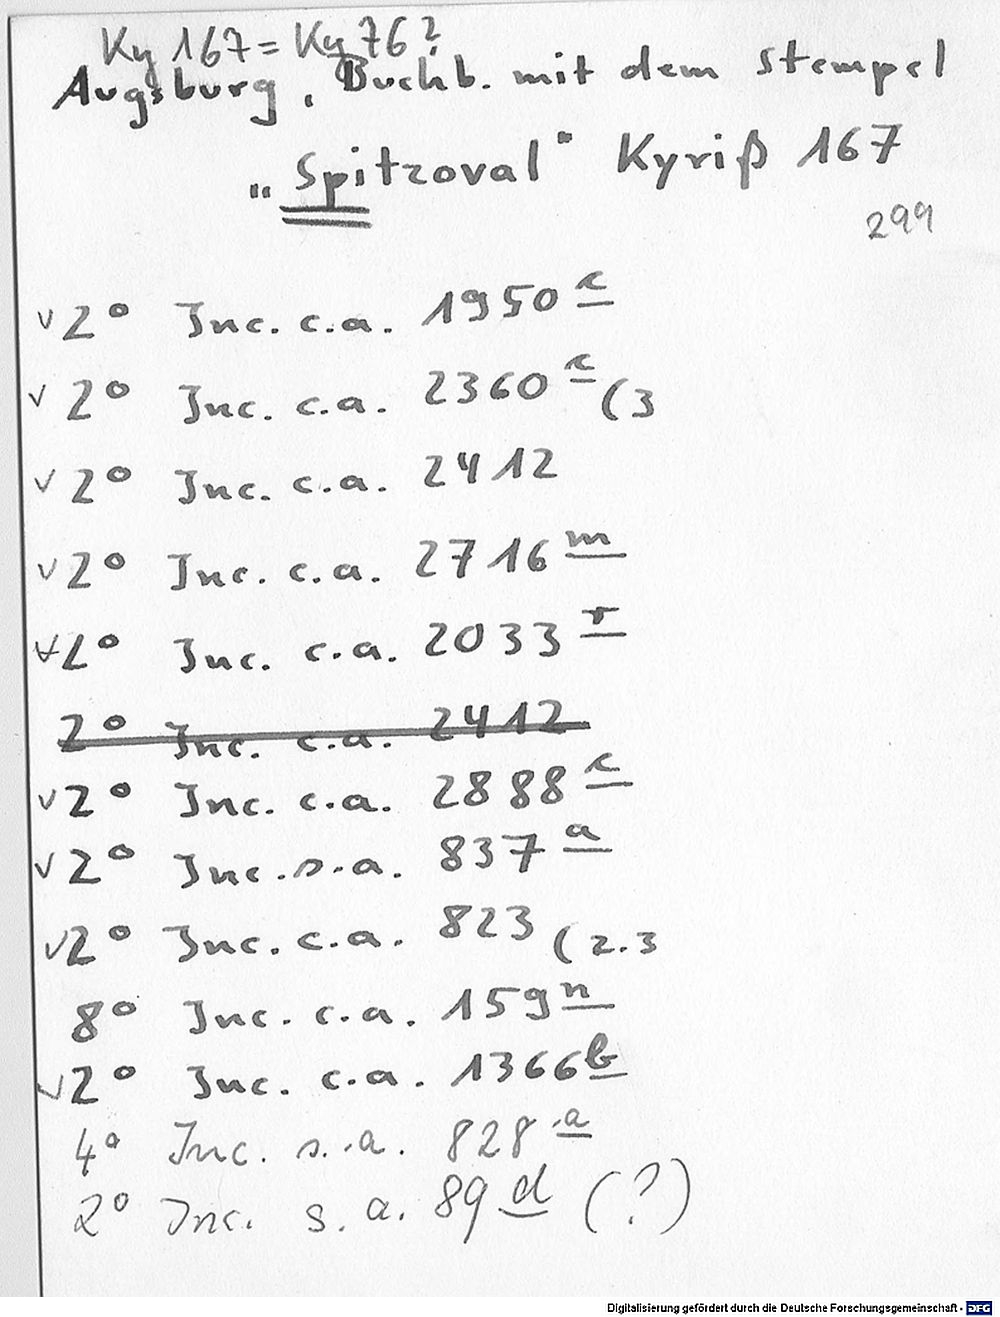 Ky 167 = Ky 76?
Augsburg, Buchb. mit dem Stempel
„Spitzoval" Kyriß 167
299
√ 2° Inc. c.a. 1950 c
√ 2° Inc. c.a. 2360 c (3
√ 2° Inc. c.a. 2412
√ 2° Inc. c.a. 2716 m
√ 2° Inc. c.a. 2033 r
2° Inc. c.a. 2412
√ 2° Inc. c.a. 2888 c
√ 2° Inc. s.a. 837 a
√ 2° Inc. c.a. 823 (2.3
8° Inc. c.a. 159 n
√ 2° Inc. c.a. 1366 b
4° Inc. s.a. 828 a
2° Inc. s.a. 89 d (?)
Digitalisierung gefördert durch die Deutsche Forschungsgemeinschaft - DFG